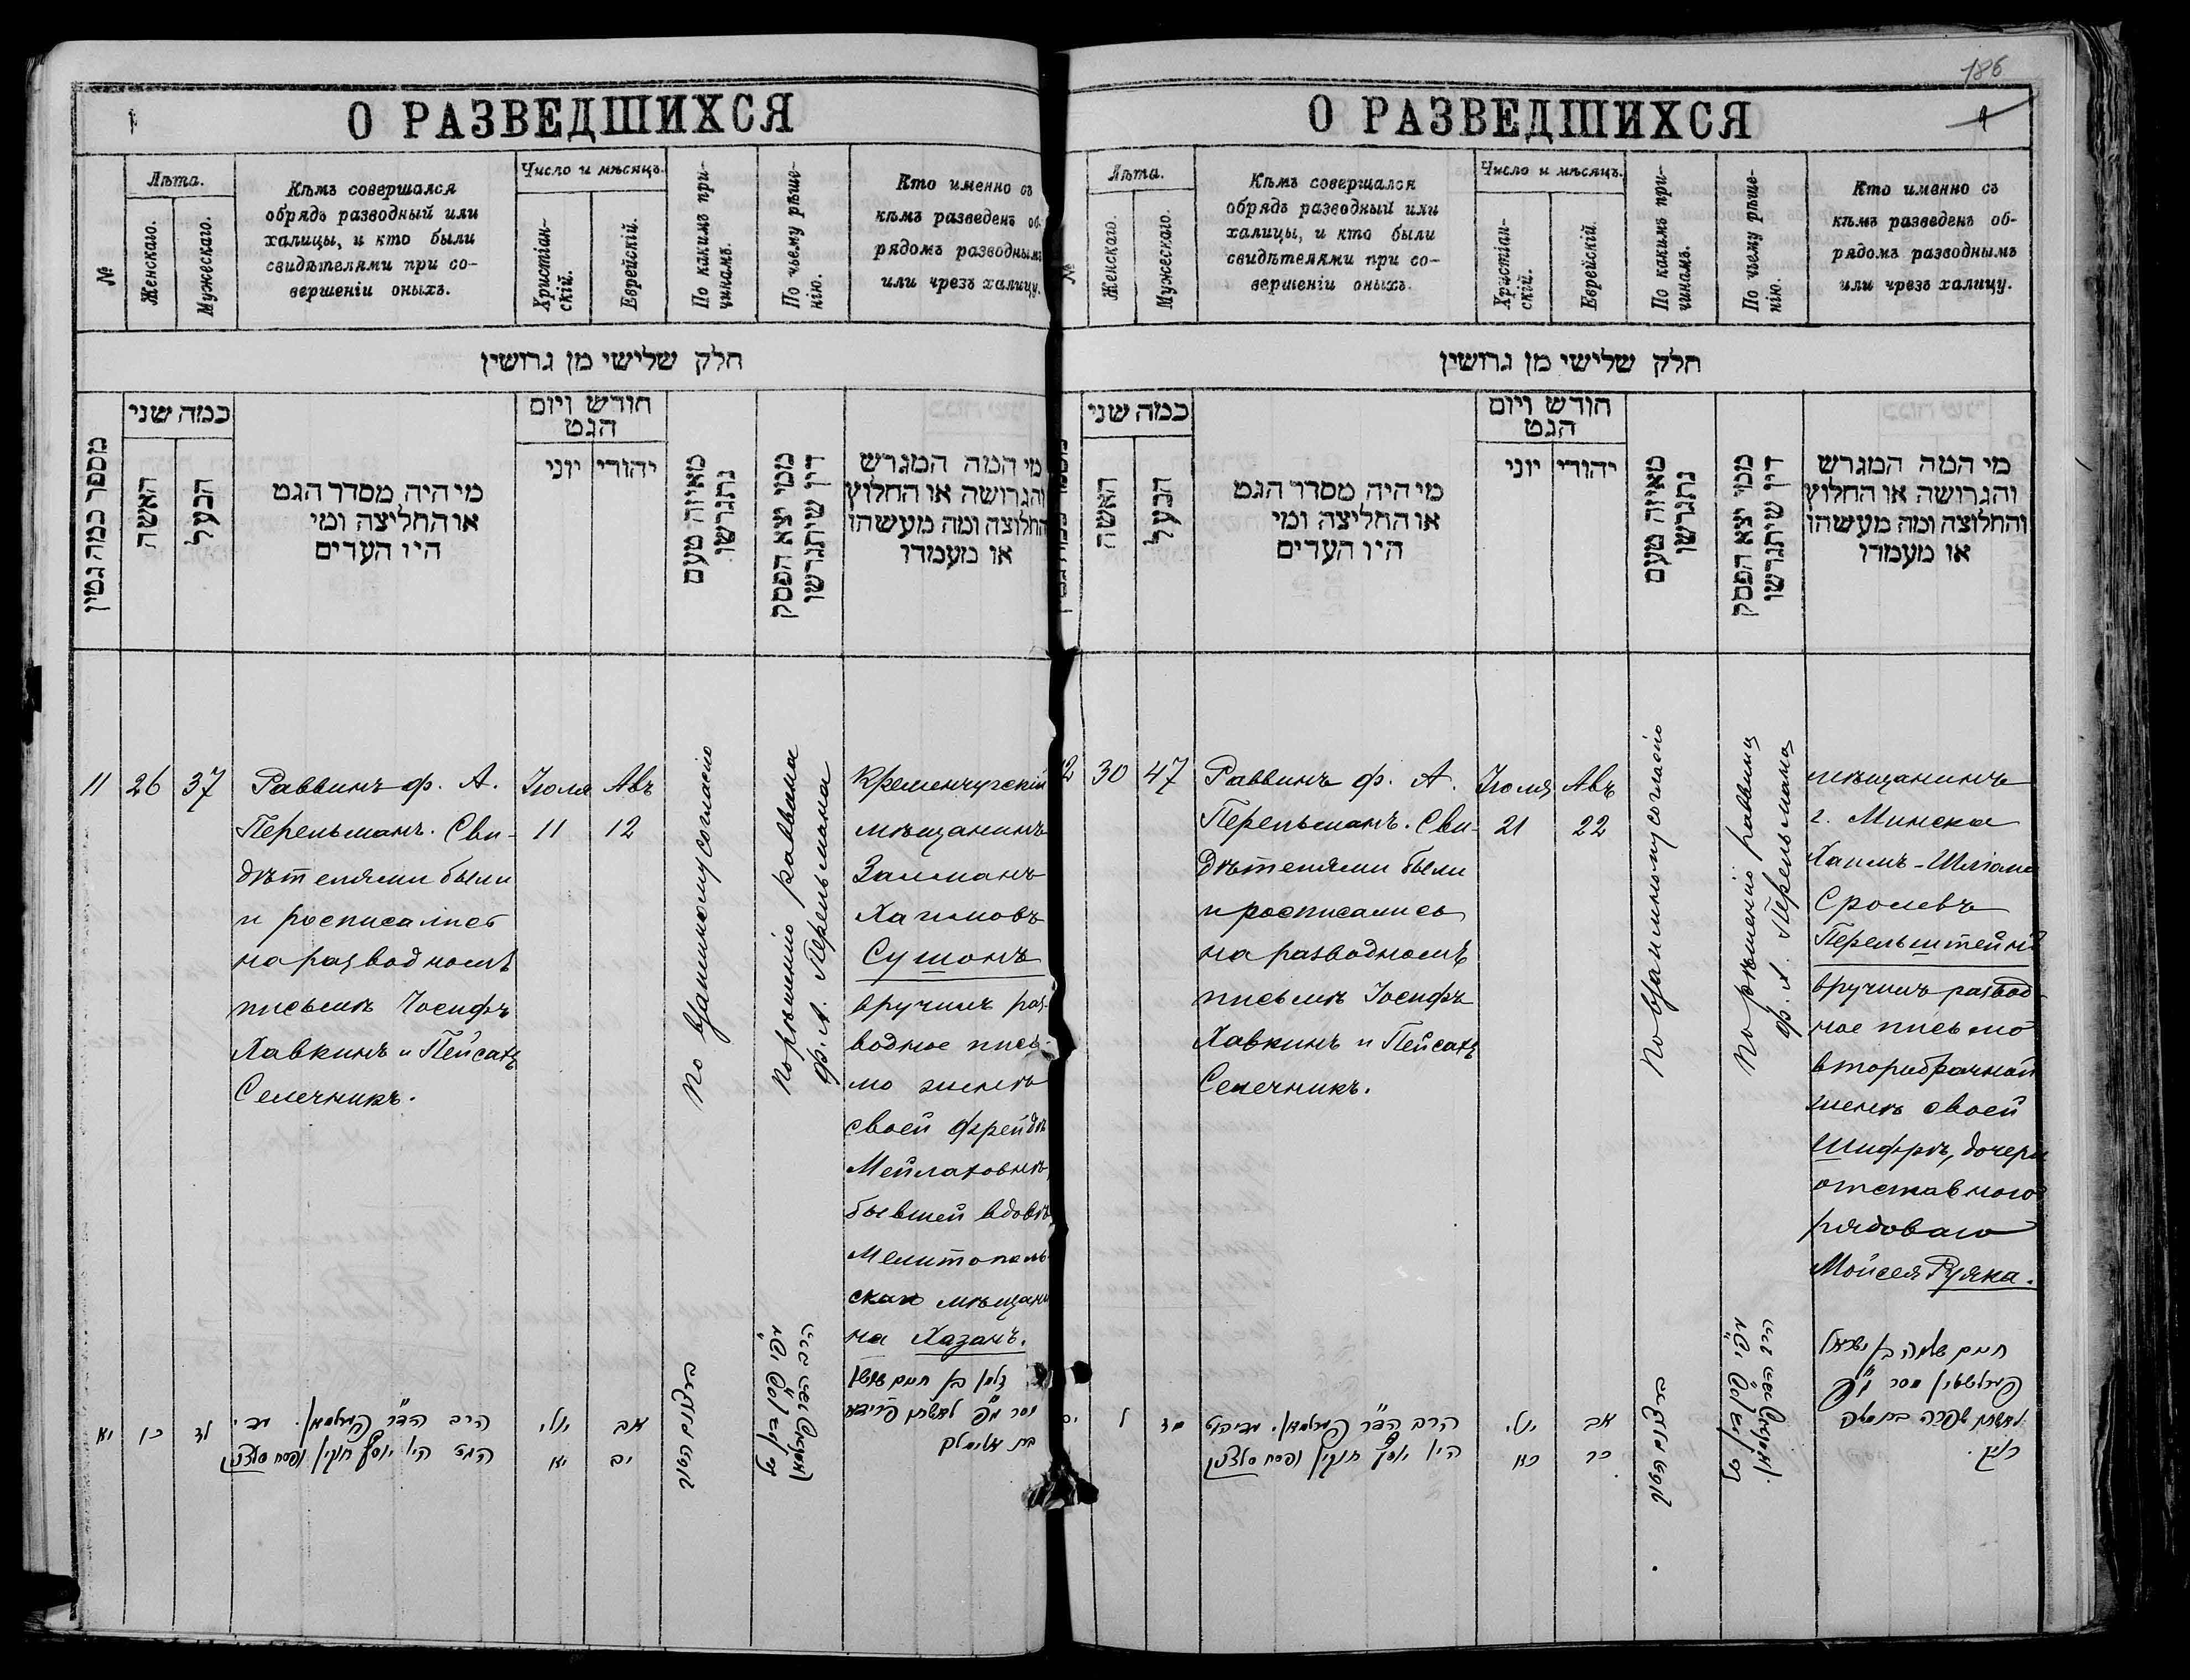 1
О РАЗВЕДШИХСЯ
№
Лѣта.
Женскаго.
Мужескаго.
Кѣмъ совершался
обрядъ разводный или
халицы, и кто были
свидѣтелями при со-
вершеніи оныхъ.
Число и мѣсяцъ.
Христіан-
скій.
Еврейскій.
По какимъ при-
чинамъ.
По чьему рѣше-
нію.
Кто именно съ
кѣмъ разведенъ об-
рядомъ разводнымъ
или чрезъ халицу.
חלק שלישי מן גרושין
מספר כמה גטין
כמה שני
האשה
הבעל
מי היה מסדר הגט
או החליצה ומי
היו העדים
חודש ויום
הגט
יוני
יהודי
מאיזה טעם
נתגרשו
ממי יצא הפסק
דין שיתגרשו
מי המה המגרש
והגרושה או החלוץ
והחלוצה ומה מעשהו
או מעמדו
11
26
37
Раввинъ ф. А.
Перельманъ. Сви-
дѣтелями были
и росписались
на разводномъ
письмѣ Іосифъ
Хавкинъ и Пейсахъ
Селечникъ.
Іюля
11
Авъ
12
По взаимному согласію
По рѣшенію раввина
ф. А. Перельмана
Кременчугскій
мѣщанинъ
Залманъ
Хаимовъ
Сушонъ
вручилъ раз-
водное пись-
мо женѣ
своей Фрейдѣ
Мейлаховнѣ,
бывшей вдовѣ
Мелитополь-
ская мѣщан
на Хазанъ.
יא
כו
לז
הרב הד״ר פערלמאן. עדי
הגט היו יוסף חווקין ופסח סעלצניק
יולי
יא
אב
יב
זלמן בן חיים
בת אלימלך
186
1
О РАЗВЕДШИХСЯ
№
Лѣта.
Женскаго.
Мужескаго.
Кѣмъ совершался
обрядъ разводный или
халицы, и кто были
свидѣтелями при со-
вершеніи оныхъ.
Число и мѣсяцъ.
Христіан-
скій.
Еврейскій.
По какимъ при-
чинамъ.
По чьему рѣше-
нію.
Кто именно съ
кѣмъ разведенъ об-
рядомъ разводнымъ
или чрезъ халицу.
חלק שלישי מן גרושין
כמה שני
האשה
הבעל
מי היה מסדר הגט
או החליצה ומי
היו העדים
חודש ויום
הגט
יוני
יהודי
מאיזה טעם
נתגרשו
ממי יצא הפסק
דין שיתגרשו
מי המה המגרש
והגרושה או החלוץ
והחלוצה ומה מעשהו
או מעמדו
12
30
47
Раввинъ ф. А.
Перельманъ. Сви-
дѣтелями были
и росписались
на разводномъ
письмѣ Іосифъ
Хавкинъ и Пейсахъ
Селечникъ.
Іюля
21
Авъ
22
По взаимному согласію
По рѣшенію раввина
ф. А. Перельмана
мѣщанинъ
г. Минска
Хаимъ-Шліома
Сролевъ
Перельштейнъ
вручилъ развод-
ное письмо
второбрачной
женѣ своей
Шифрѣ, дочери
отставного
рядового
Мойсея Рузяка.
ל
מז
הרב הד״ר פערלמאן. עדי הגט
היו יוסף חווקין ופסח סעלצניק
יולי
כא
אב
כב
חיים שלמה בן ישראל